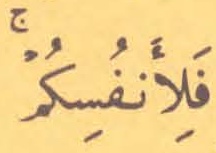 فَلِأَنفُسِكُمْ ۚ